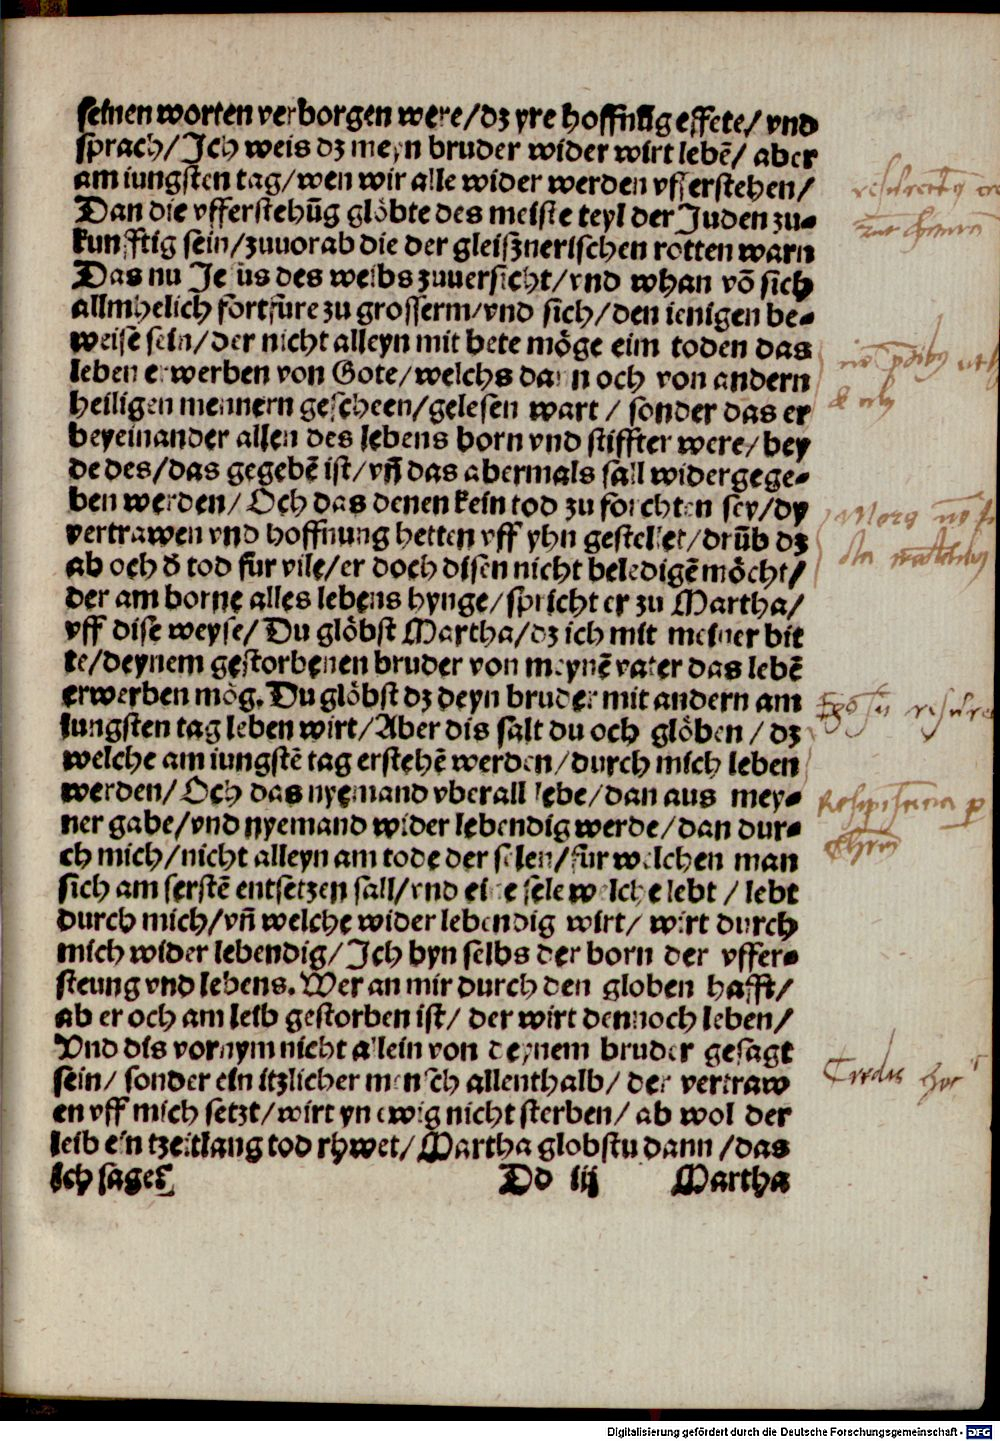 seinen worten verborgen were/dz yre hoffnũg effete/ vnd
sprach/ Ich weis dz meyn bruder wider wirt lebẽ/ aber
am iungsten tag/wen wir alle wider werden vfferstehen/
Dan die vfferstehũg glöbte des meiste teyl der Juden zu⸗
kunfftig sein/zuuorab die der gleisznerischen rotten warn
Das nu Jesus des weibs zuuersicht/vnd whan võ sich
allmhelich fortfüre zu grosserm/vnd sich/den ienigen be⸗
weise sein/der nicht alleyn mit bete möge eim toden das
leben erwerben von Gote/welchs dann och von andern
heiligen mennern gescheen/gelesen wart / sonder das er
beyeinander allen des lebens born vnd stiffter were/bey
de des/das gegebẽ ist/vñ das abermals sall widergege⸗
ben werden/ Och das denen kein tod zu forchten sey/dy
vertrawen vnd hoffnung hetten vff yhn gestellet/drũb dz
ab och d̃ tod fur vile/er doch disen nicht beledigẽ möcht/
der am borne alles lebens hynge/spricht er zu Martha/
vff dise weyse/ Du glöbst Martha/dz ich mit meiner bit
te/deynem gestorbenen bruder von meynẽ vater das lebẽ
erwerben mög. Du glöbst dz deyn bruder mit andern am
iungsten tag leben wirt/Aber dis salt du och glöben / dz
welche am iungstẽ tag erstehẽ werden/durch mich leben
werden/ Och das nyemand vberall lebe/dan aus mey⸗
ner gabe/vnd nyemand wider lebendig werde/dan dur⸗
ch mich/nicht alleyn am tode der selen/fur welchen man
sich am serstẽ entsetzen sall/vnd eine sele welche lebt / lebt
durch mich/vñ welche wider lebendig wirt/ wirt durch
mich wider lebendig/ Ich byn selbs der born der vffer⸗
steung vnd lebens. Wer an mir durch den globen hafft/
ab er och am leib gestorben ist/ der wirt dennoch leben/
Vnd dis vornym nicht allein von deynem bruder gesagt
sein/ sonder ein itzlicher mensch allenthalb/ der vertraw
en vff mich setzt/wirt yn ewig nicht sterben/ ab wol der
leib ein tzeitlang tod rhwet/ Martha globstu dann /das
ich sage?
Dd iij Martha
Credis hoc
Digitalisierung gefördert durch die Deutsche Forschungsgemeinschaft - DFG